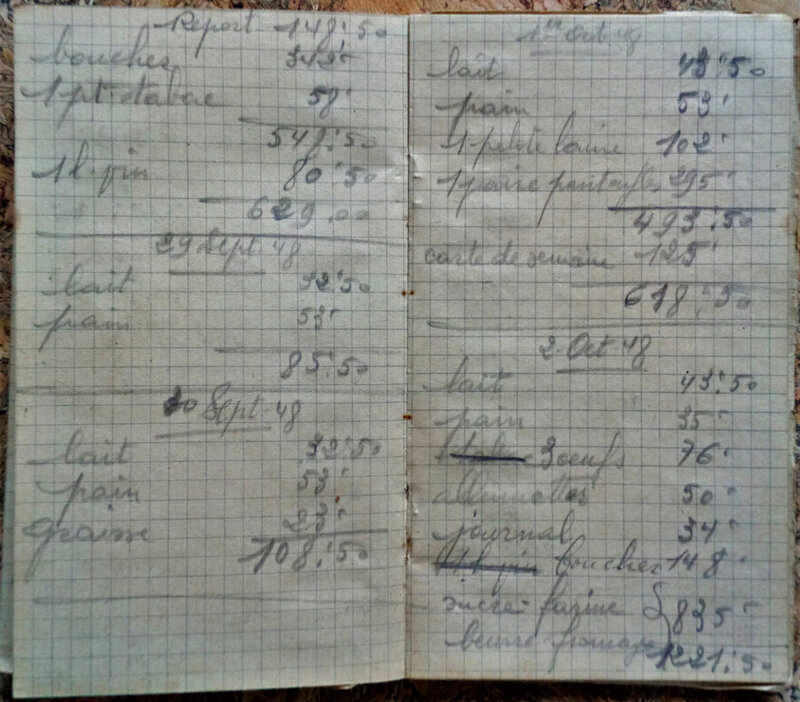 Report 148:50
boucher 342
1 pt tabac 58
548:50
1 l. pin 80:50
629.00
29 Sept 48
lait 32:50
pain 53
85:50
30 Sept 48
lait 32:50
pain 53
graisse 23
108:50
1er Oct 48
lait 43:50
pain 53
1 pelote laine 102
1 paire pantoufles 295
493:50
carte de semaine 125
618:50
2 Oct 48
lait 43:50
pain 35
3 oeufs 76
allumettes 50
journal 34
boucher 148
sucre farine 835
beurre-fromage
1221:50